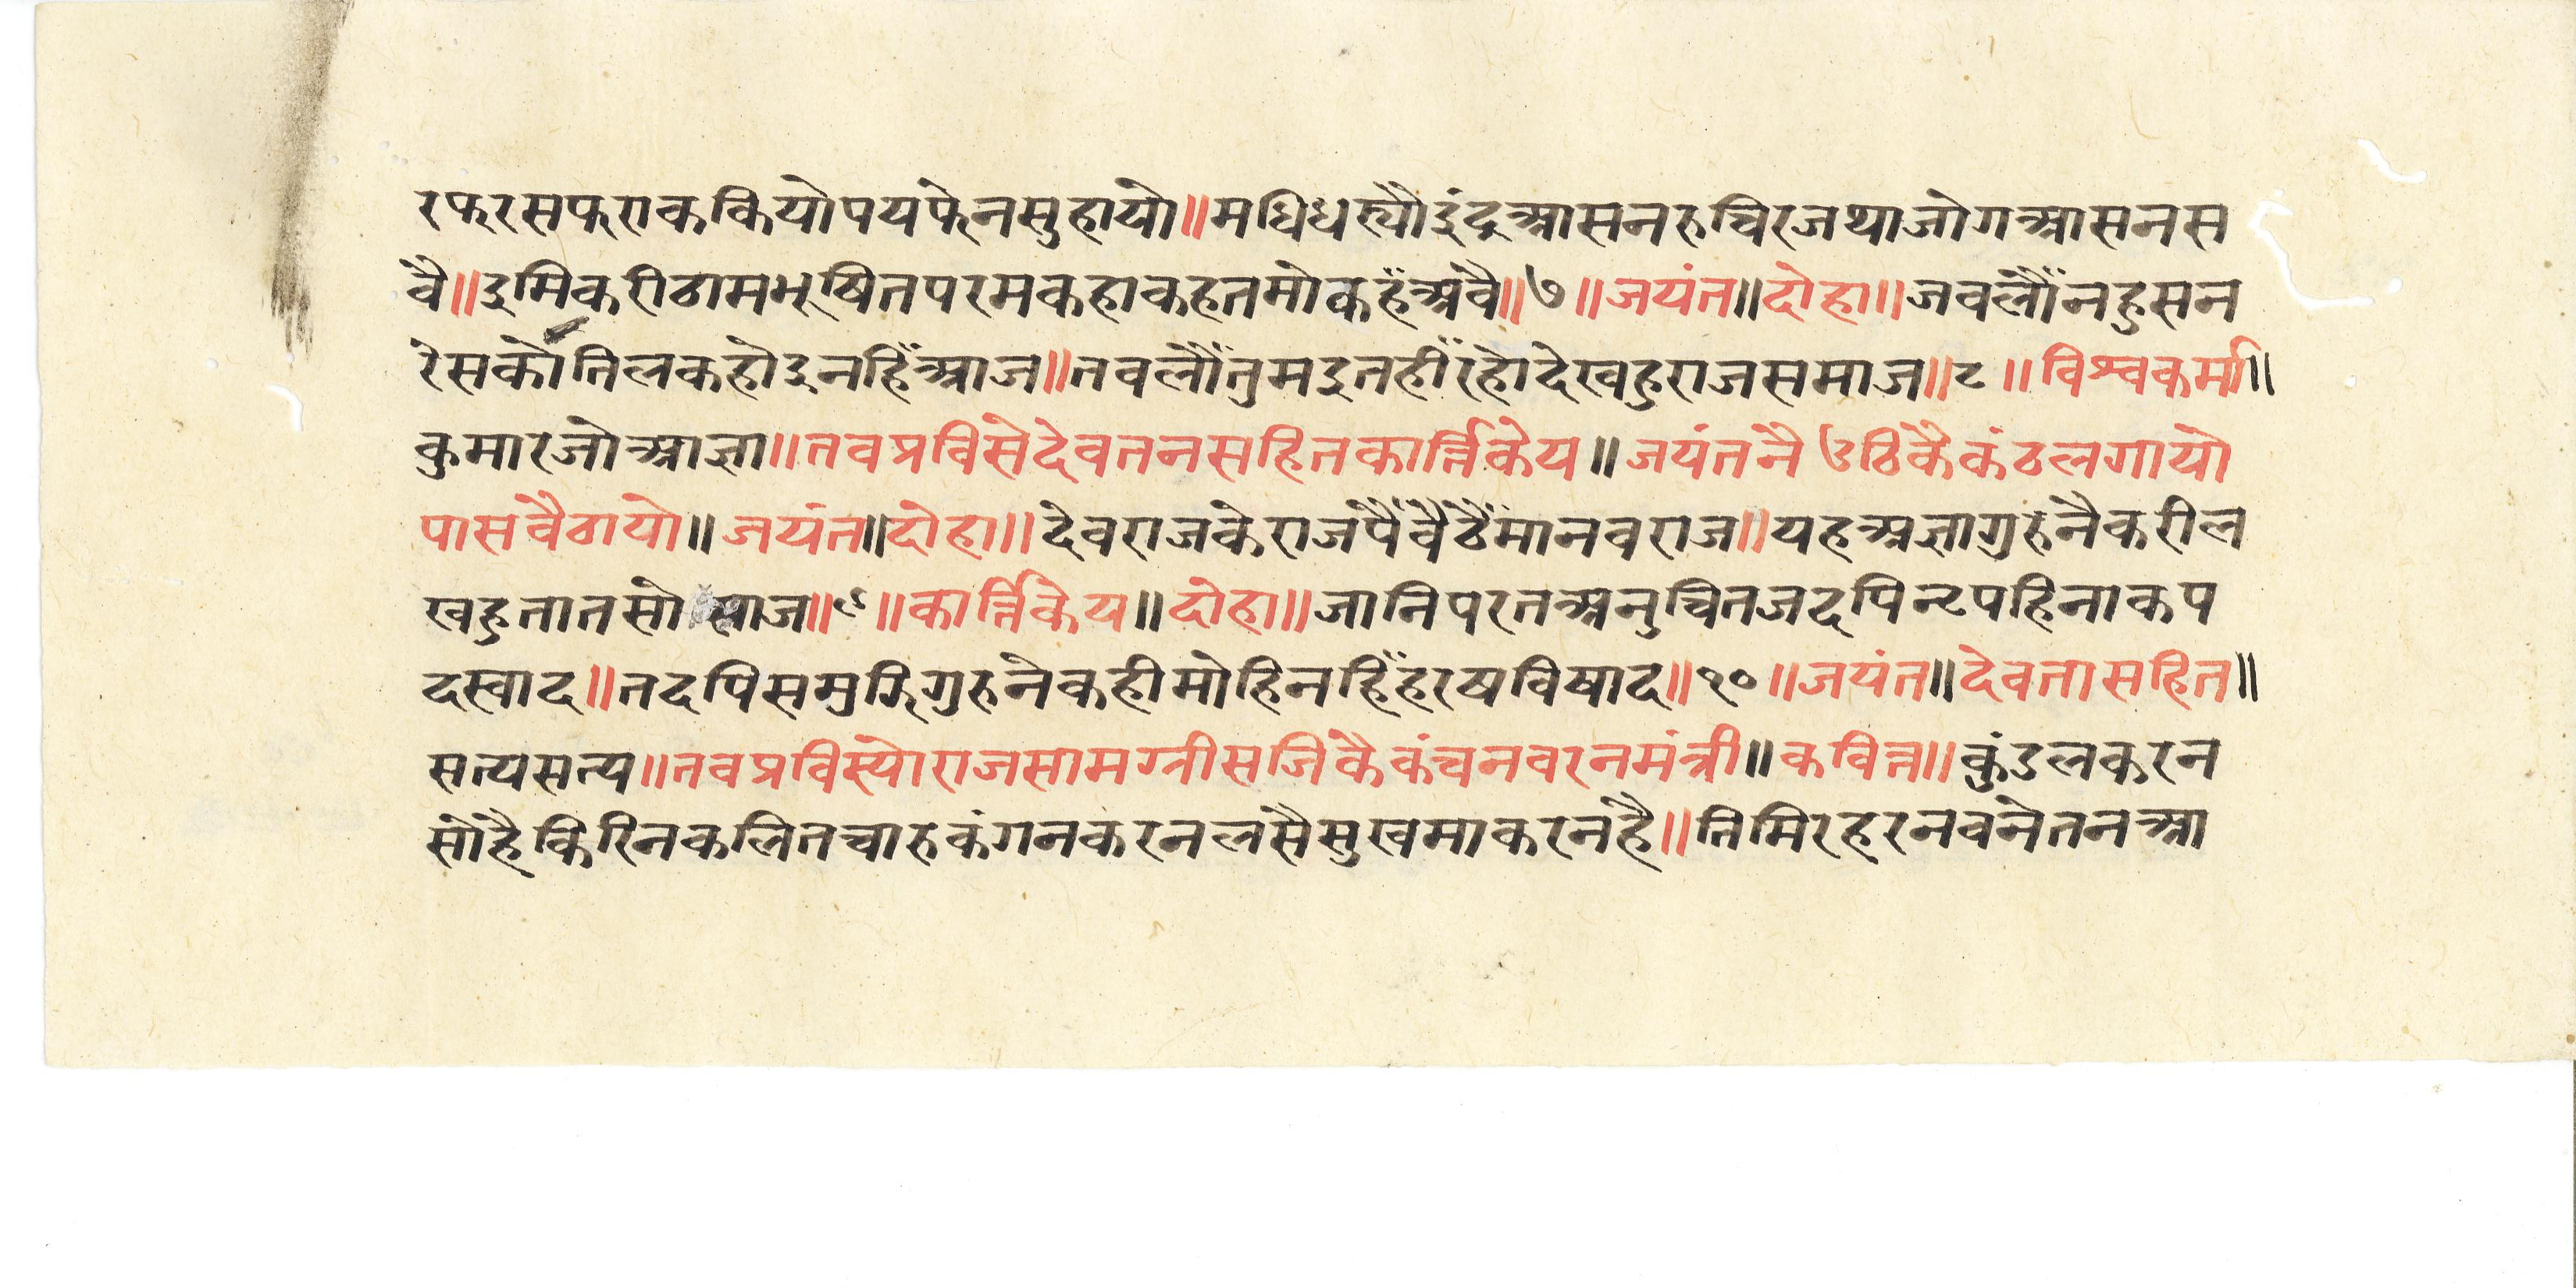 रफरसफराककियोपयफेनसुहायो॥मधिधस्यौइंदुआसनरुचिरजथाजोगआसनस
वै॥इमिकरीठामभूषितपरमकहाकहतमोकहँअवै॥७॥जयंत॥दोहा॥जवलौँनहुसन
रेसकोतिलकहोइनहिँआज॥तवलौँतुमइतहीँरहोदेखहुराजसमाज॥८॥विश्वकर्मा॥
कुमारजोआज्ञा॥तवप्रविसेदेवतनसहितकार्त्तिकेय॥जयंतनैउठिकैकंठलगायो
पासवैठायो॥जयंत॥दोहा॥देवराजकेराजपैँवैठैँमानवराज॥यहअज्ञागुरुनैकरील
खहुतातसो साज॥९॥कार्त्तिकेय॥दोहा॥जानिपरतअनुचितजदपिन्टपहिनाकप
दस्वाद॥तदपिसमुझिगुरुनेकहीमोहिनहिँहरषविषाद॥१०॥जयंत॥देवतासहित॥
सत्यसत्य॥तवप्रविस्योराजसामग्नीसजिकैकंचनवरनमंत्री॥कवित्त॥कुंडलकरन
सोहैकिरिनकलितचारुकंगनकरनलसैसुखमाकरनहै॥तिमिरहरनवनेतनआ